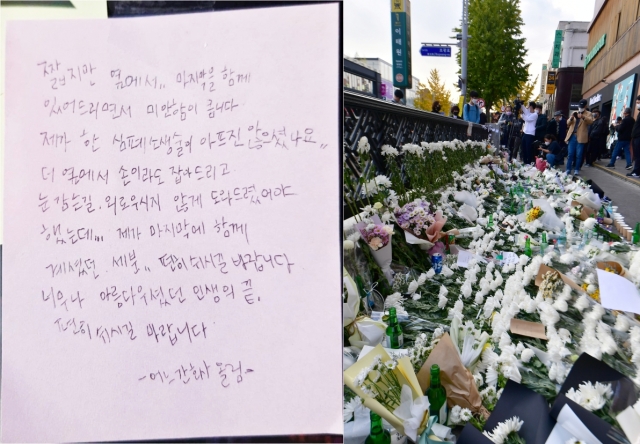 짧지만 옆에서.. 마지막을 함께
있어드리면서 미안함이 듭니다
제가 한 심폐소생술이 아프진 않으셨나요..
더 옆에서 손이라도 잡아드리고
눈 감는길, 외로우시지 않게 도와드렸어야
했는데... 제가 마지막에 함께
계셨던 세분.. 편히 쉬시길 바랍니다
너무나 아름다우셨던 인생의 끝,
편히 쉬시길 바랍니다.
-어느간호사 올림-
이태원